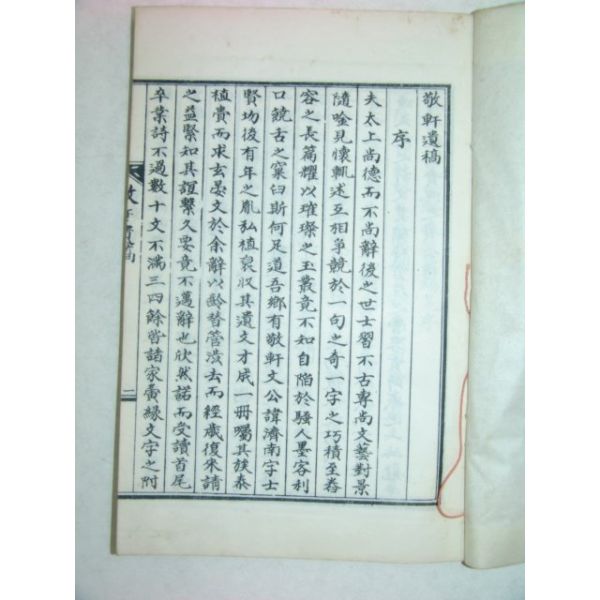 敬軒遺稿
序
夫太上尚德而不尚辭後之世士習不古專尚文藝對景
隨唫見懷輒述互相爭競於一句之奇一字之巧積至卷
容之長篇耀以璀璨之玉叢竟不知自陷於騷人墨客利
口饒舌之窠臼斯何足道吾鄉有敬軒文公諱濟南字士
賢功後有年之胤弘植裒収其遺文才成一冊囑其族泰
植賫而求玄晏文於余辭以齡暮管澁去而經歲復來請
之益緊知其誼繫久要竟不邁辭也欣然諾而受讀首尾
卒業詩不過數十文不滿三四餘皆諸家賡緣文字之附
一